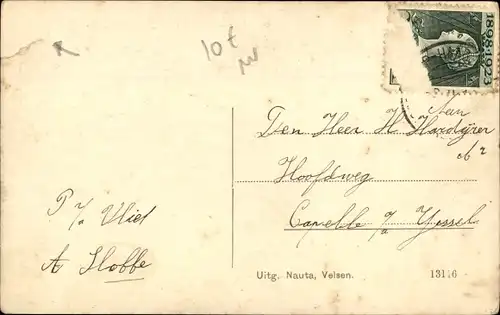 10 t
1898-1923
Aan
Den Heer H Hardijzer
Hoofdweg
Capelle a/d Yssel
P v/d Vliet
A Slobbe
Uitg. Nauta, Velsen. 13116